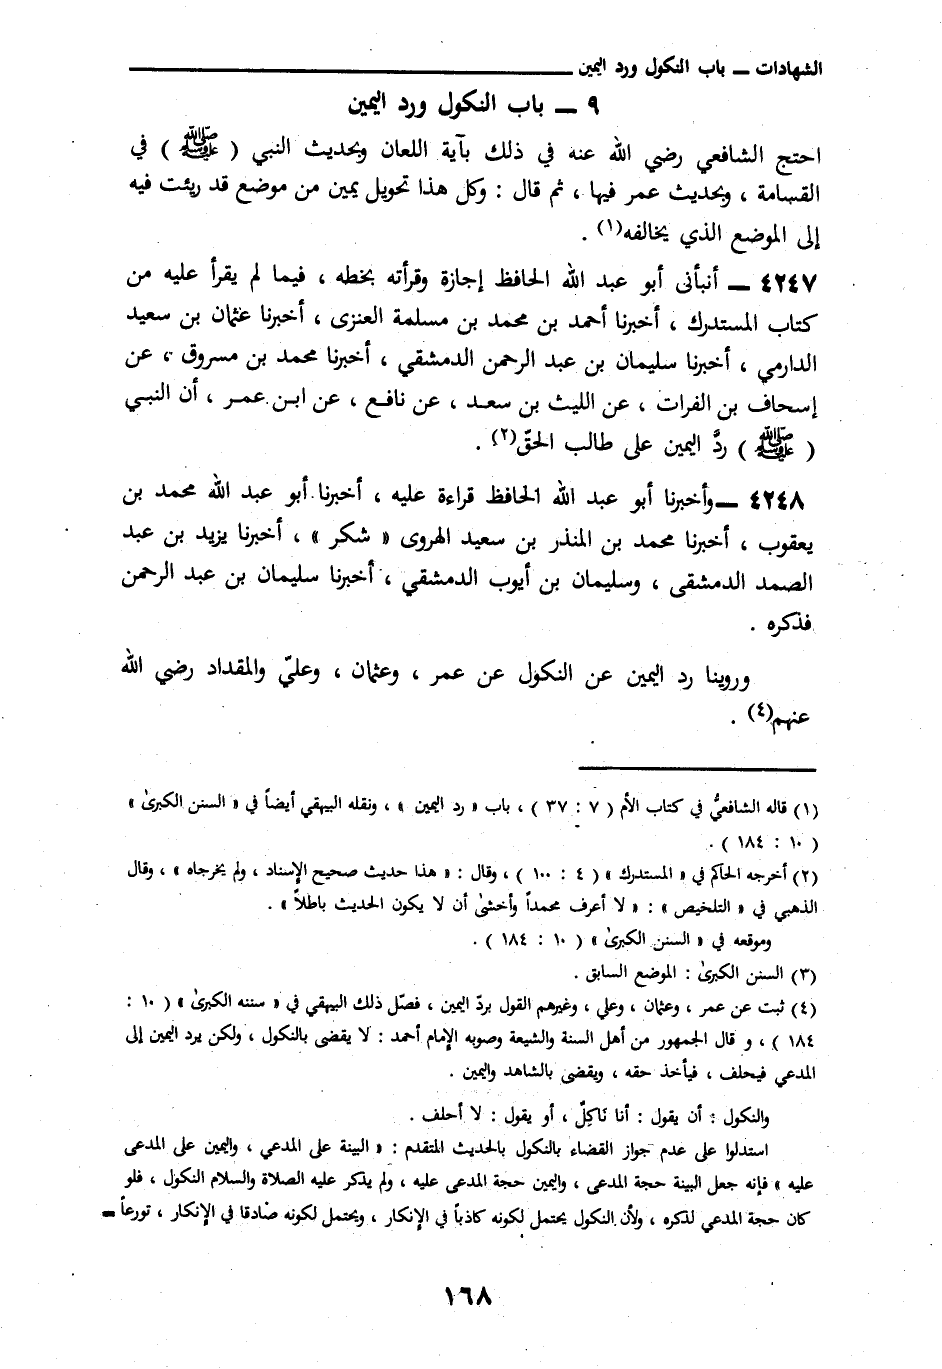 الشهادات ــ باب النكول ورد اليمين
٩ ــ باب النكول ورد اليمين
احتج الشافعي رضي الله عنه في ذلك بآية اللعان وبحديث النبي ( ﷺ ) في
القسامة ، وبحديث عمر فيها ، ثم قال : وكل هذا تحويل يمين من موضع قد ريئت فيه
إلى الموضع الذي يخالفه(١) .
٤٢٤٧ ــ أنبأنى أبو عبد الله الحافظ إجازة وقرأته بخطه ، فيما لم يقرأ عليه من
كتاب المستدرك ، أخبرنا أحمد بن محمد بن مسلمة العنزى ، أخبرنا عثمان بن سعيد
الدارمي ، أخبرنا سليمان بن عبد الرحمن الدمشقي ، أخبرنا محمد بن مسروق ، عن
إسحاق بن الفرات ، عن الليث بن سعد ، عن نافع ، عن ابن عمر ، أن النبي
( ﷺ ) ردَّ اليمين على طالب الحقّ(٢) .
٤٢٤٨ ــ وأخبرنا أبو عبد الله الحافظ قراءة عليه ، أخبرنا أبو عبد الله محمد بن
يعقوب ، أخبرنا محمد بن المنذر بن سعيد الهروى « شكر » ، أخبرنا يزيد بن عبد
الصمد الدمشقى ، وسليمان بن أيوب الدمشقي ، أخبرنا سليمان بن عبد الرحمن
فذكره .
وروينا رد اليمين عن النكول عن عمر ، وعثمان ، وعليّ والمقداد رضي الله
عنهم(٤) .
(١) قاله الشافعيُّ في كتاب الأم ( ٧ : ٣٧ ) ، باب « رد اليمين » ، ونقله البيهقي أيضاً في « السنن الكبرىٰ »
( ١٠ : ١٨٤ ) .
(٢) أخرجه الحاكم في « المستدرك » ( ٤ : ١٠٠ ) ، وقال : « هذا حديث صحيح الإسناد ، ولم يخرجاه » ، وقال
الذهبي في « التلخيص » : « لا أعرف محمداً وأخشىٰ أن لا يكون الحديث باطلاً » .
وموقعه في « السنن الكبرىٰ » ( ١٠ : ١٨٤ ) .
(٣) السنن الكبرىٰ : الموضع السابق .
(٤) ثبت عن عمر ، وعثمان ، وعلي ، وغيرهم القول بردّ اليمين ، فصّل ذلك البيهقي في « سننه الكبرىٰ » ( ١٠ :
١٨٤ ) ، و قال الجمهور من أهل السنة والشيعة وصوبه الإمام أحمد : لا يقضى بالنكول ، ولكن يرد اليمين إلى
المدعي فيحلف ، فيأخذ حقه ، ويقضى بالشاهد واليمين .
والنكول : أن يقول : أنا نَاكِلّ ، أو يقول : لا أحلف .
استدلوا على عدم جواز القضاء بالنكول بالحديث المتقدم : « البينة على المدعي ، واليمين على المدعى
عليه » فإنه جعل البينة حجة المدعى ، واليمين حجة المدعى عليه ، ولم يذكر عليه الصلاة والسلام النكول ، فلو
كان حجة المدعي لذكره ، ولأن النكول يحتمل لكونه كاذباً في الإنكار ، ويحتمل لكونه صادقا في الإنكار ، تورعاً =
١٦٨